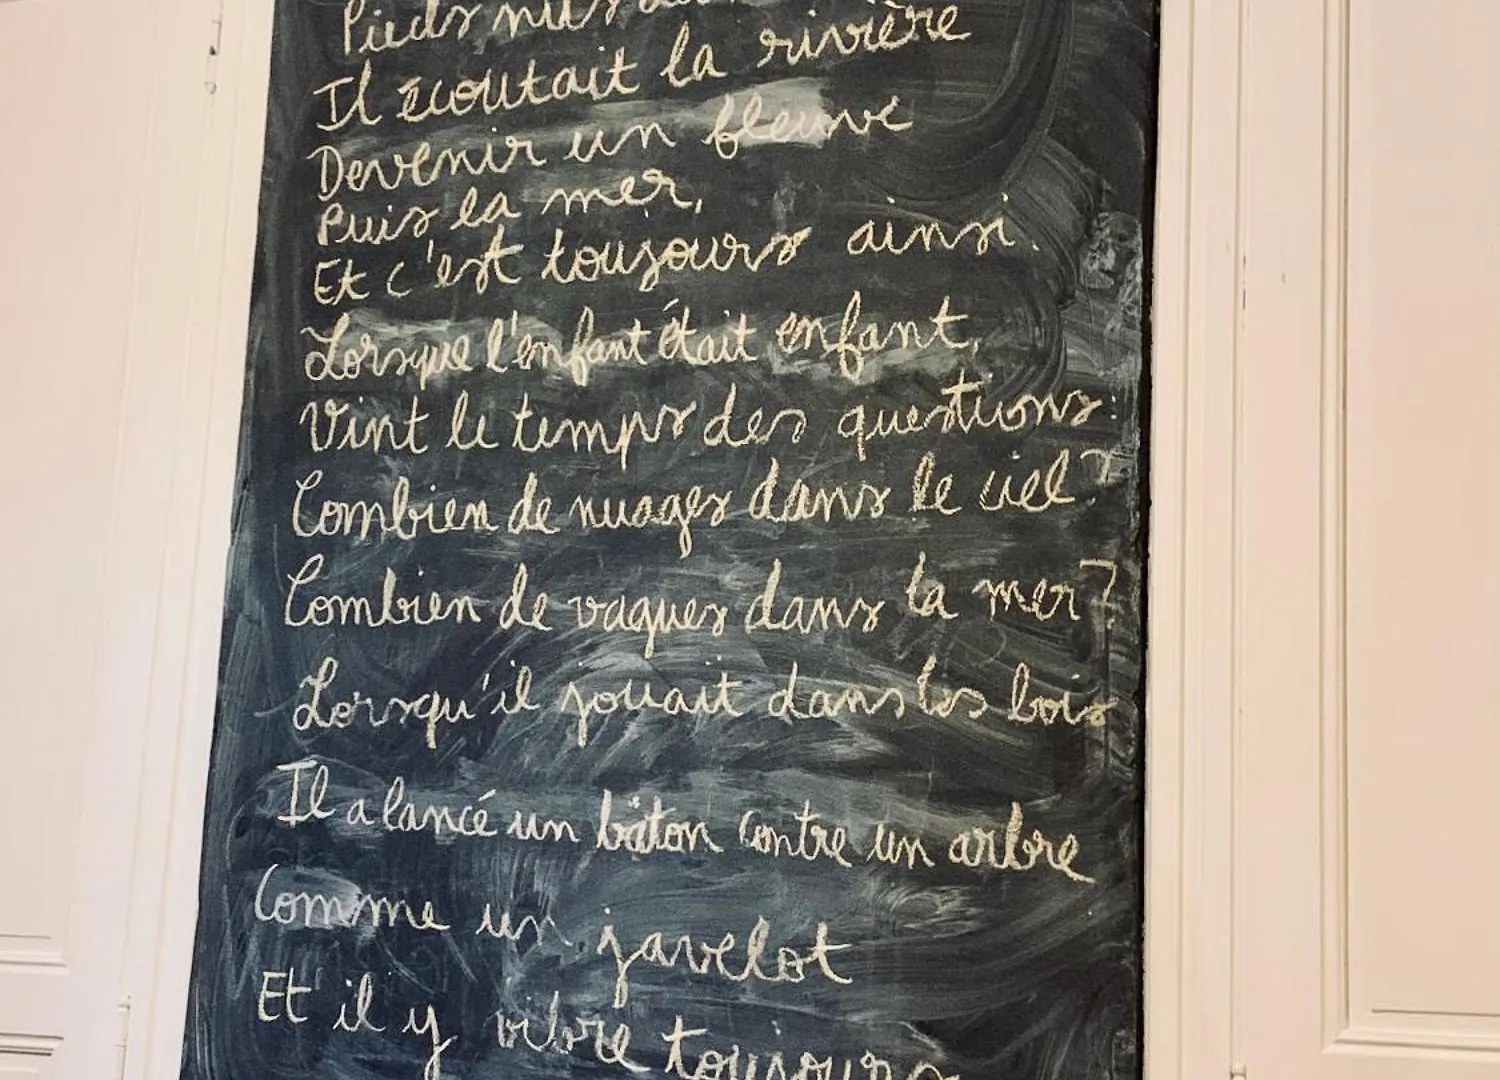 Pieds nus
Il écoutait la rivière
Devenir un fleuve
Puis la mer,
Et c'est toujours ainsi.
Lorsque l'enfant était enfant,
Vint le temps des questions:
Combien de nuages dans le ciel?
Combien de vagues dans la mer?
Lorsqu'il jouait dans les bois
Il a lancé un bâton contre un arbre
Comme un javelot
Et il y vibre toujours